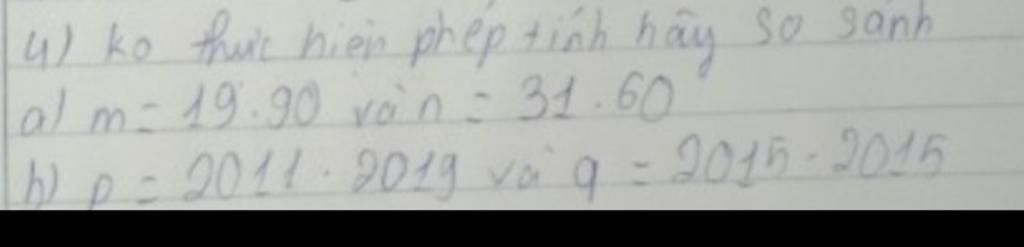 4) ko thực hiện phép tính hãy so sánh
a) m = 19.90 và n = 31.60
b) p = 2011.2019 và q = 2015.2015